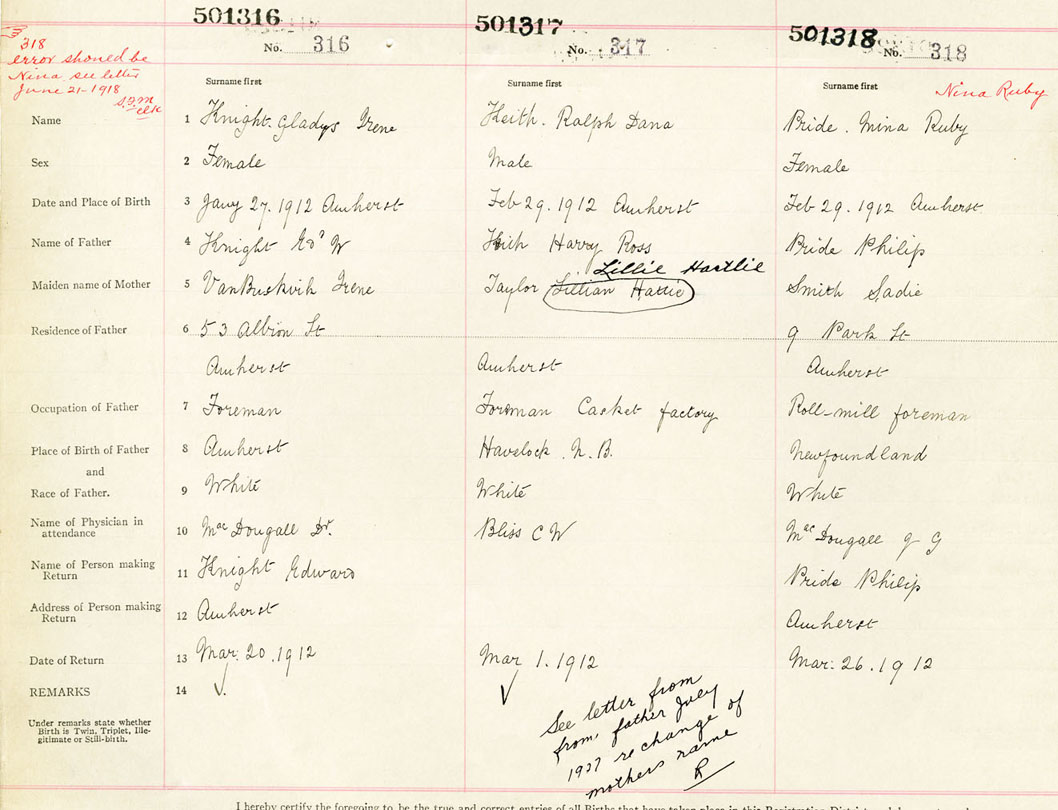 501316 501317 501318
No. 316 No. 317 No. 318
318
error should be
Nina see letter
June 21-1918
clk
Surname first Surname first Surname first Nina Ruby
Name 1 Knight. Gladys Irene Keith. Ralph Dana Pride. Mina Ruby
Sex 2 Female Male Female
Date and Place of Birth 3 Jany 27. 1912 Amherst Feb 29. 1912 Amherst Feb 29. 1912 Amherst
Name of Father 4 Knight Ed'd W Keith Harry Ross Pride Philip
Lillie Hartlie
Maiden name of Mother 5 VanBuskirk Irene Taylor Lillian Hattie Smith Sadie
Residence of Father 6 53 Albion St 9 Park St
Amherst Amherst Amherst
Occupation of Father 7 Foreman Foreman Casket factory Roll-mill foreman
Place of Birth of Father 8 Amherst Havelock. N.B. Newfoundland
and
Race of Father. 9 White White White
Name of Physician in
attendance 10 MacDougall Dr. Bliss C W MacDougall J G
Name of Person making
Return 11 Knight Edward Pride Philip
Address of Person making
Return 12 Amherst Amherst
Date of Return 13 Mar: 20. 1912 Mar 1. 1912 Mar: 26. 1912
REMARKS 14
Under remarks state whether
Birth is Twin, Triplet, Ille-
gitimate or Still-birth.
See letter from
from, father July
1937 re change of
mothers name
R
I hereby certify the foregoing to be the true and correct entries of all Births that have taken place in this Registration District